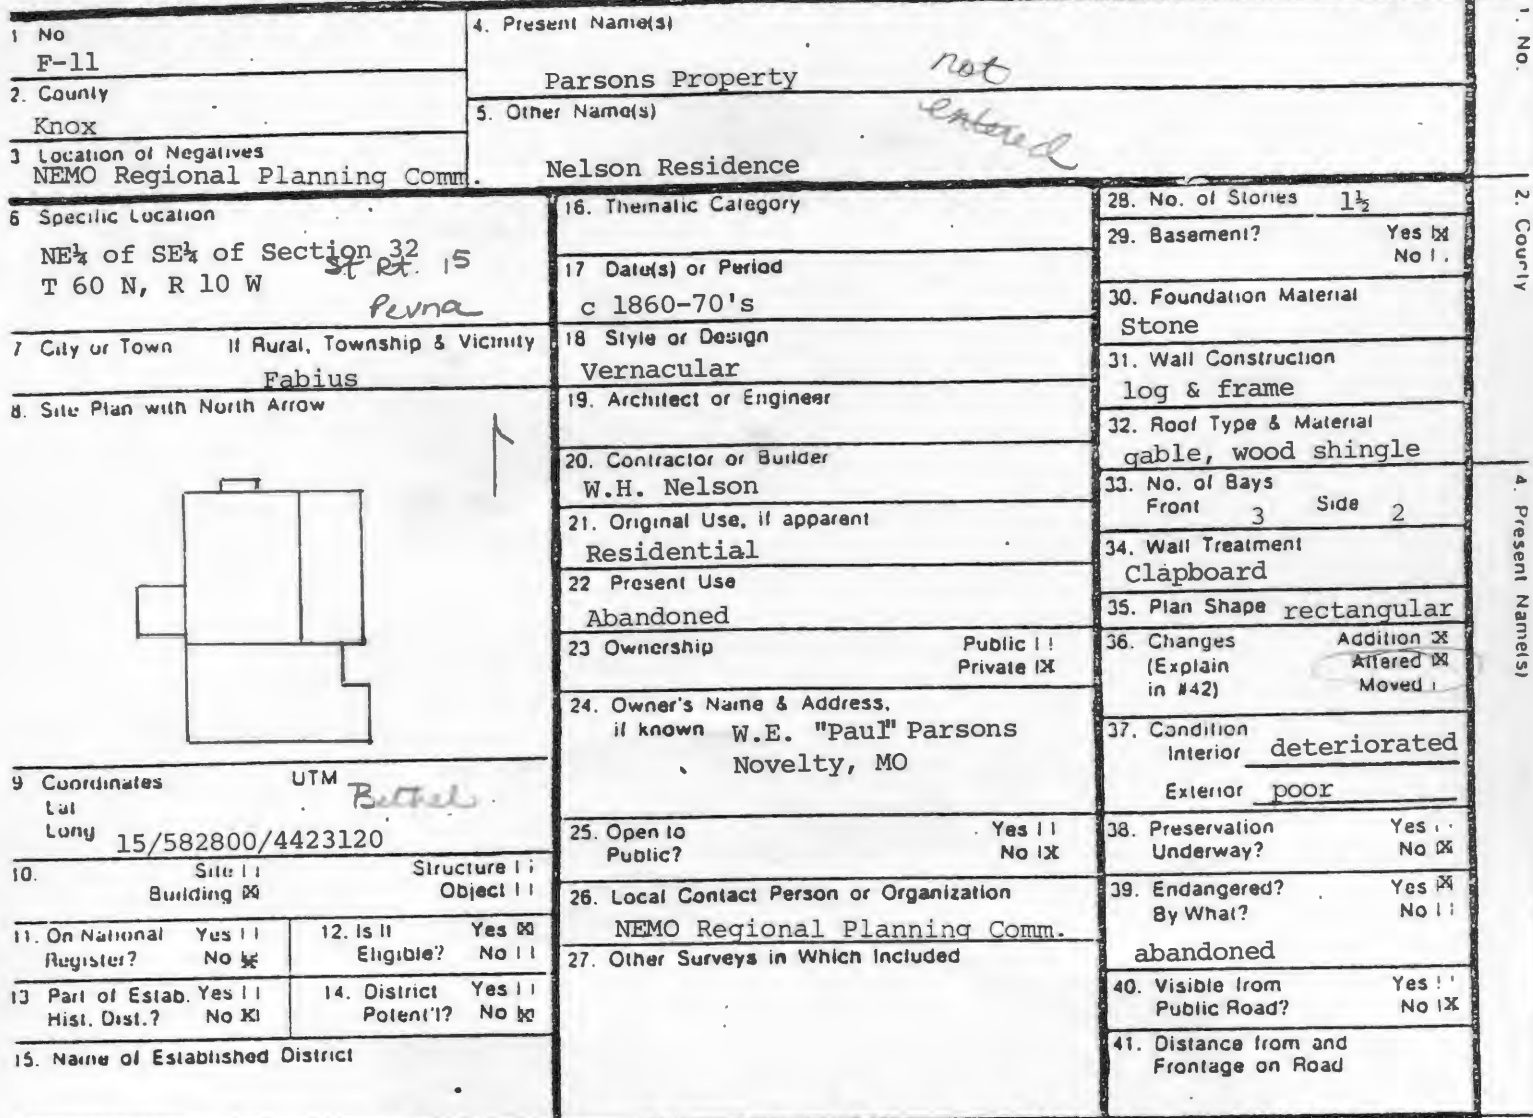 1 No
F-11
2. County
Knox
3 Location of Negatives
NEMO Regional Planning Comm.
4. Present Name(s)
Parsons Property
not
entered
5. Other Name(s)
Nelson Residence
6 Specific Location
NE¼ of SE¼ of Section 32
T 60 N, R 10 W
St Rt. 15
7 City or Town If Rural, Township & Vicinity
Fabius
8. Site Plan with North Arrow
9 Coordinates UTM
Bethel
Lat
Long 15/582800/4423120
10. Site Structure
Building X Object
11. On National Yes
Register? No X
12. Is It Yes X
Eligible? No
13 Part of Estab. Yes
Hist. Dist.? No X
14. District Yes
Potent'l? No X
15. Name of Established District
16. Thematic Category
17 Date(s) or Period
c 1860-70's
18 Style or Design
Vernacular
19. Architect or Engineer
20. Contractor or Builder
W.H. Nelson
21. Original Use, if apparent
Residential
22 Present Use
Abandoned
23 Ownership Public
Private X
24. Owner's Name & Address,
if known W.E. "Paul" Parsons
Novelty, MO
25. Open to Yes
Public? No X
26. Local Contact Person or Organization
NEMO Regional Planning Comm.
27. Other Surveys in Which Included
28. No. of Stories 1½
29. Basement? Yes X
No
30. Foundation Material
Stone
31. Wall Construction
log & frame
32. Roof Type & Material
gable, wood shingle
33. No. of Bays
Front 3 Side 2
34. Wall Treatment
Clapboard
35. Plan Shape rectangular
36. Changes Addition X
(Explain Altered X
in #42) Moved
37. Condition
Interior deteriorated
Exterior poor
38. Preservation Yes
Underway? No X
39. Endangered? Yes X
By What? No
abandoned
40. Visible from Yes
Public Road? No X
41. Distance from and
Frontage on Road
1. No.
2. County
4. Present Name(s)